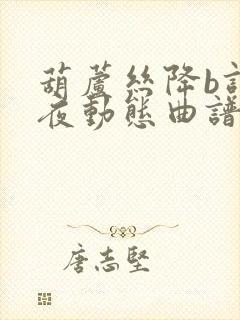 葫蘆絲降b
夜動態曲譜
唐志堅